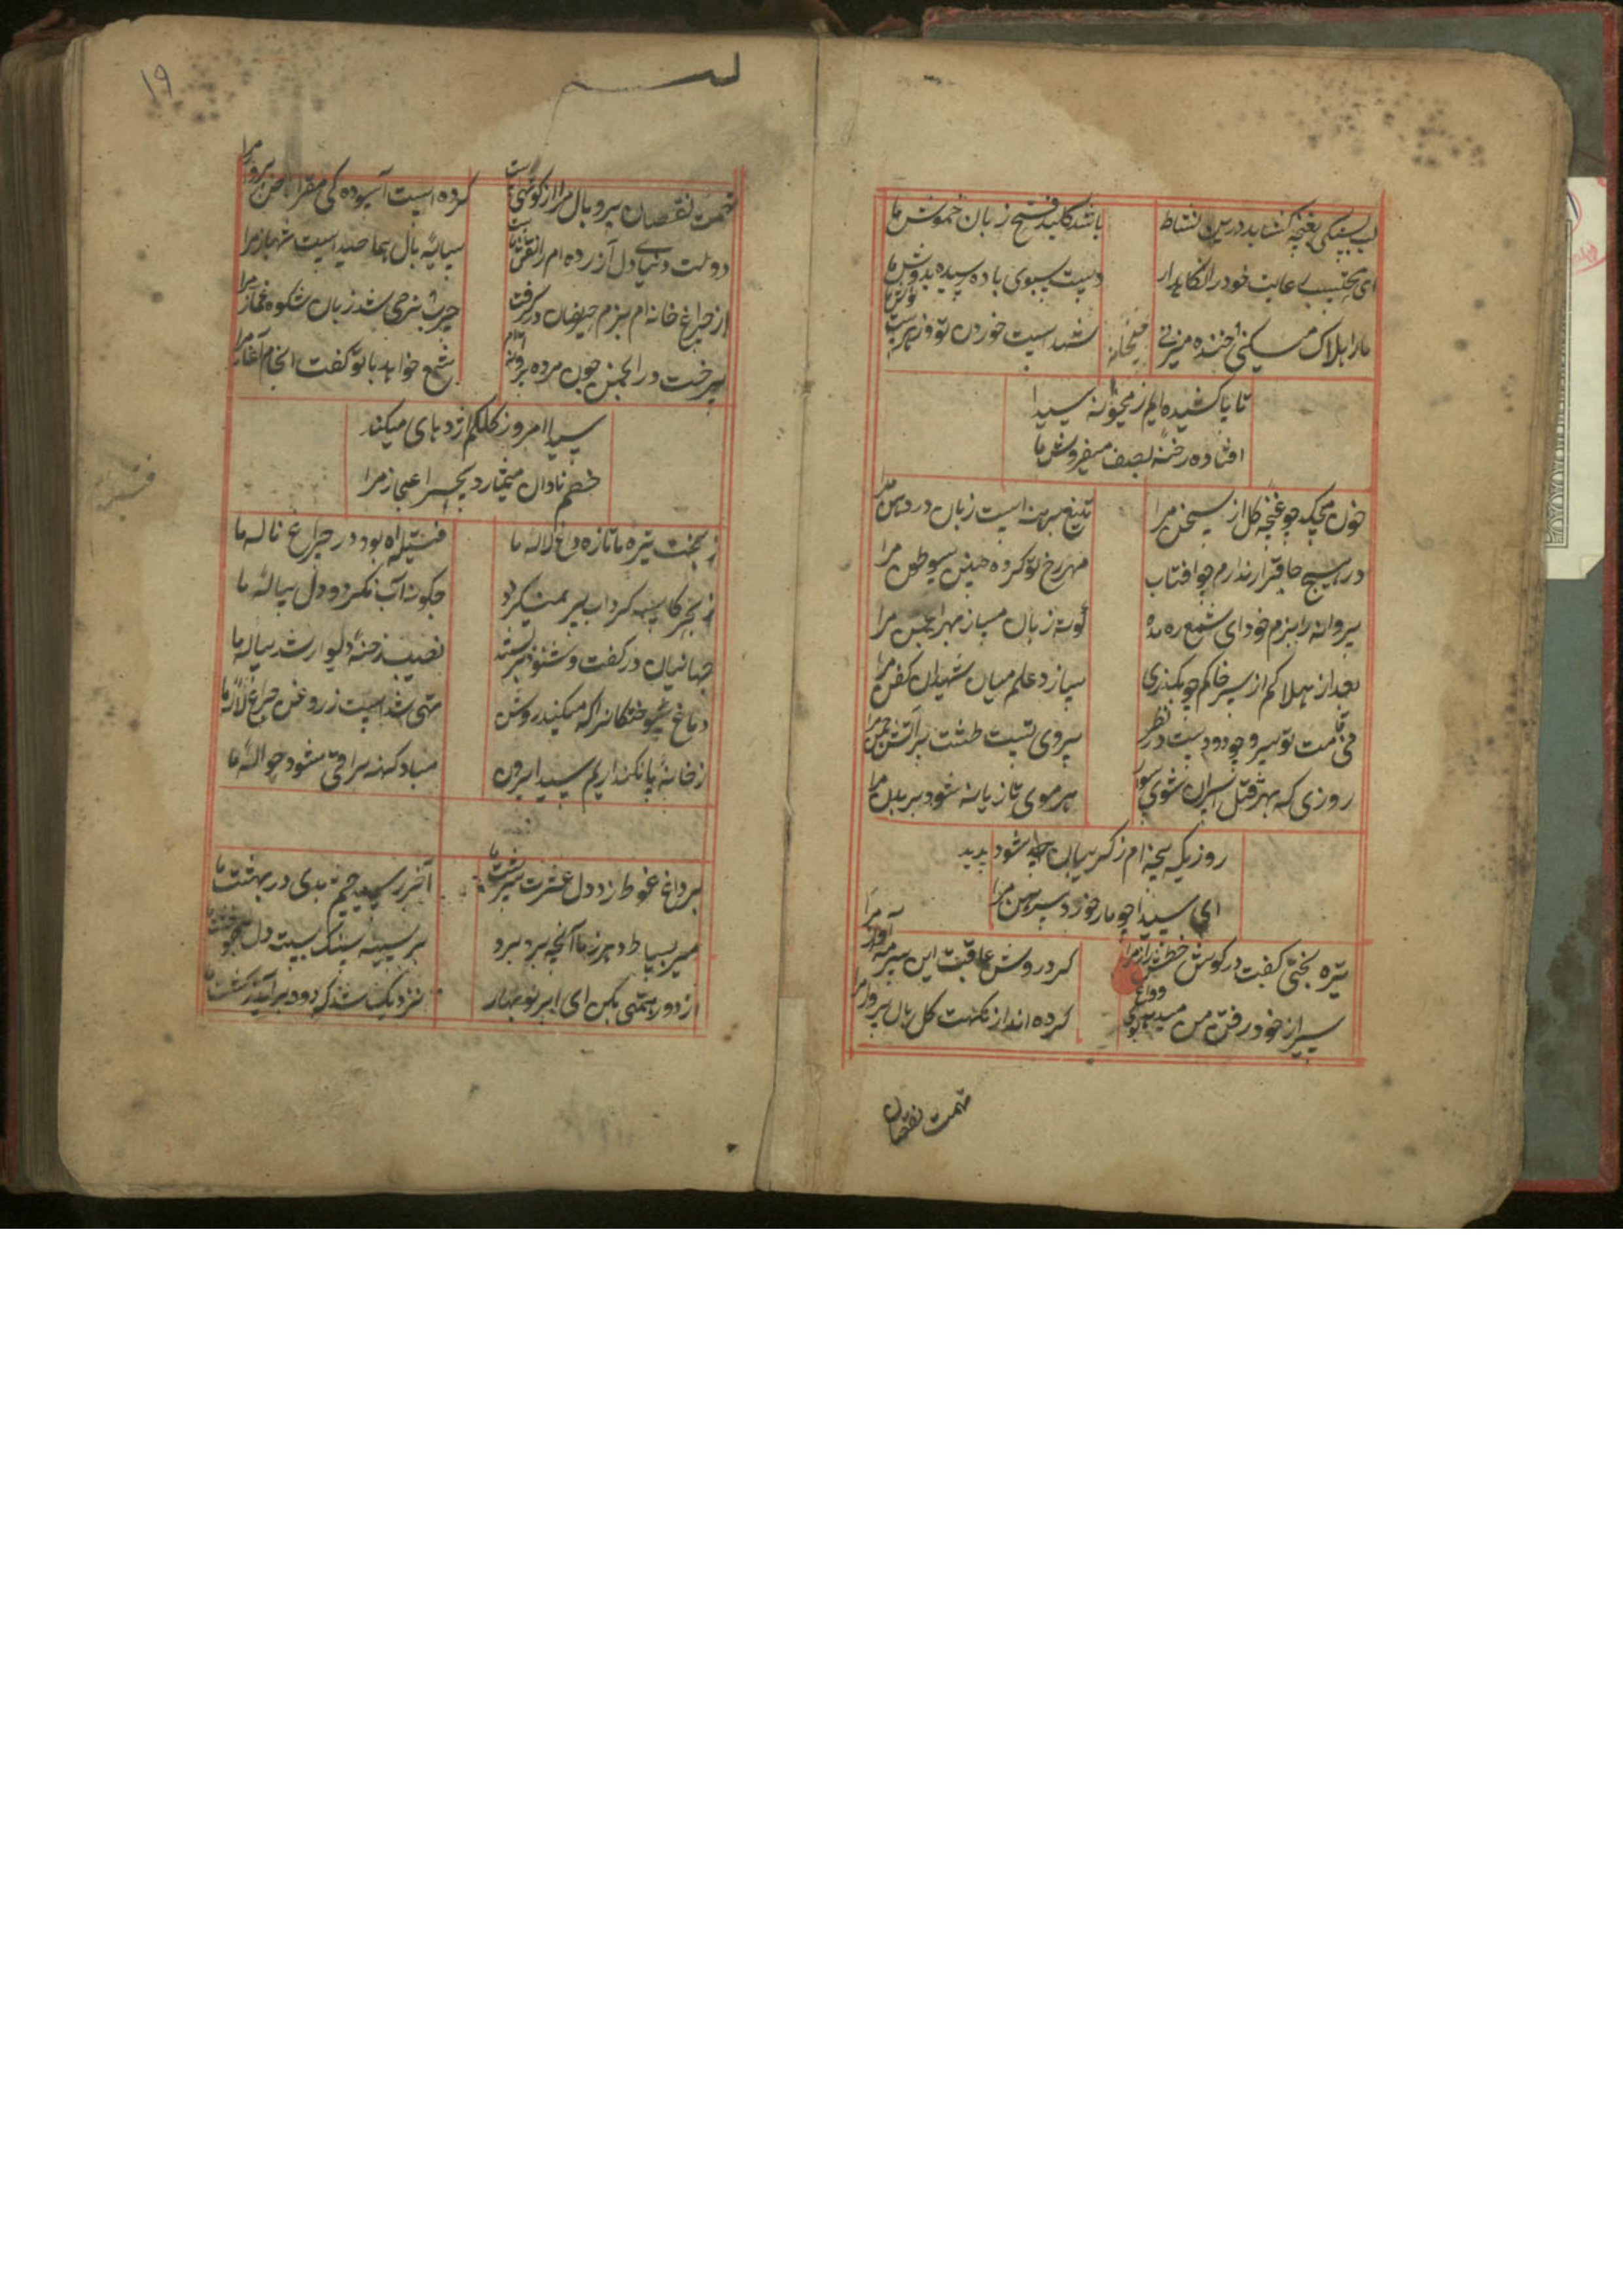 لب بستگی بغنچه کشاید درین نشاط
باشد کلید فتح زبان خموش ما
ای محتسب رعایت خود را نگاهدار
دست سبوی باده رسیده بدوش ما
ما را هلاک میکنی و خنده میزنی
شد است خوردن تو و زهرست نوش ما
تا پا کشیده ایم ز میخانه سیدا
افتاده رخنه بصف میفروش ما
خون میچکد چو غنچه گل از سخن مرا
تیغ برهنه است زبان در دهن مرا
در هیچ جا قرار ندارم چو افتاب
مهر رخ تو کرده چنین بیوطن مرا
پروانه را ببزم خود ای شمع ره مده
کوته زبان مساز بهر انجمن مرا
بعد از هلاکم از سر خاکم چو بگذری
سازد علم میان شهیدان کفن مرا
بی قامت تو سرو چو دودیست در نظر
بی روی تست طشت پر آتش چمن مرا
روزی که بهر قتل اسیران شوی سوار
هر موی تازیانه شود بر بدن مرا
روزیکه پنجه ام ز گریبان جدا شود پدید
ای سیدا چو مار خورد پیرهن مرا
تیره بختی گفت در گوش خطش راز مرا
کرد روشن عاقبت این سرمه آواز مرا
سیر از خود رفتن من میدهد بوی وداع
کرده انداز نکهت گل بال پرواز مرا
تهمت نقصان
۱۹
تهمت نقصان پر و بال مرا از کوتهی است
کرده است آسوده کی مقراض پرواز مرا
دولت دنیا دل آزرده ام را نقش نیست
سایه بال هما صید است شهباز مرا
از چراغ خانه ام بزم حریفان در گرفت
چرب نرمی شد زبان شکوه غماز مرا
سرخت در انجمن چون مرده پروانه ام
شمع خواهد با تو گفت انجام آغاز مرا
سیدا امروز کلکم اژدهای میکند
خصم نادان میشمارد سحر اعجاز مرا
ز بخت تیره ما تازه داغ لاله ما
فتیله آه بود در چراغ ناله ما
ز بحر کاسه گرداب پر نمیگردد
چگونه آب نگردد دل پیاله ما
جهانیان در گفت و شنود بر بستند
نصیب رخنه دیوار شد رساله ما
دماغ سوختگانرا که میکند روشن
تهی شد است ز روغن چراغ لاله ما
ز خانه پا نگذاریم سیدا بیرون
مباد کهنه براتی شود حواله ما
بر داغ غوطه زد دل عشرت سرشت ما
آخر رسید چشم بدی در بهشت ما
میر بساط دهر ز ما آنچه برد برد
بر سینه سنگ بست دل
از دور همتی بکن ای ابر نوبهار
نزدیک شد که دود برآید ز کشت ما